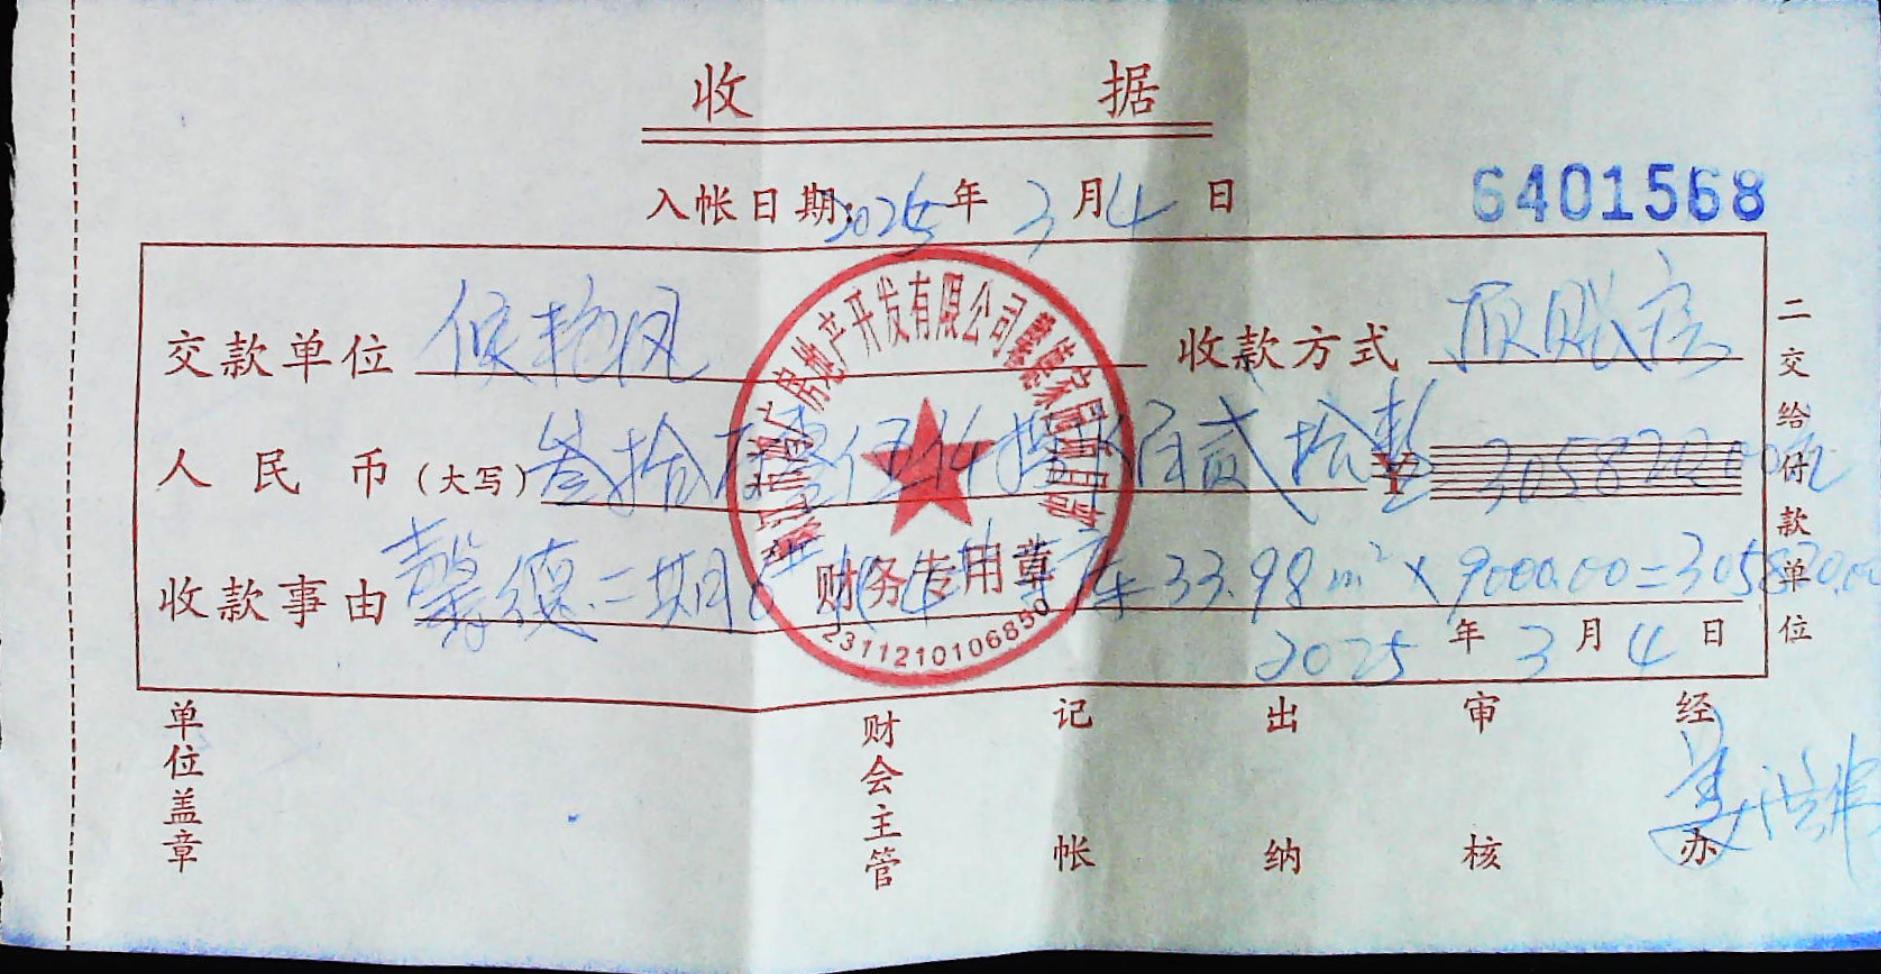 收 据
入帐日期:2025年3月4日
6401568
交款单位 侯艳凤 收款方式 顶账房
人民币(大写)叁拾万零伍仟捌佰贰拾整 ¥305820.00元
收款事由 馨德二期 33.98m²×9000.00=305820.00
2025年3月4日
房地产开发有限公司馨德家园
财务专用章
2311210106850
二交给付款单位
单位盖章 财会主管 记帐 出纳 审核 经办